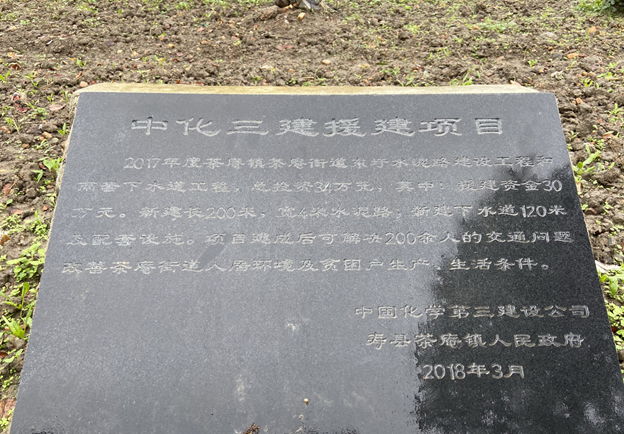 中化三建援建项目
2017年度茶庵镇茶庵街道东圩水泥路建设工程和
商套下水道工程，总投资34万元，其中：援建资金30
万元。新建长200米，宽4米水泥路；新建下水道120米
及配套设施。项目建成后可解决200余人的交通问题
改善茶庵街道人居环境及贫困户生产、生活条件。
中国化学第三建设公司
寿县茶庵镇人民政府
2018年3月